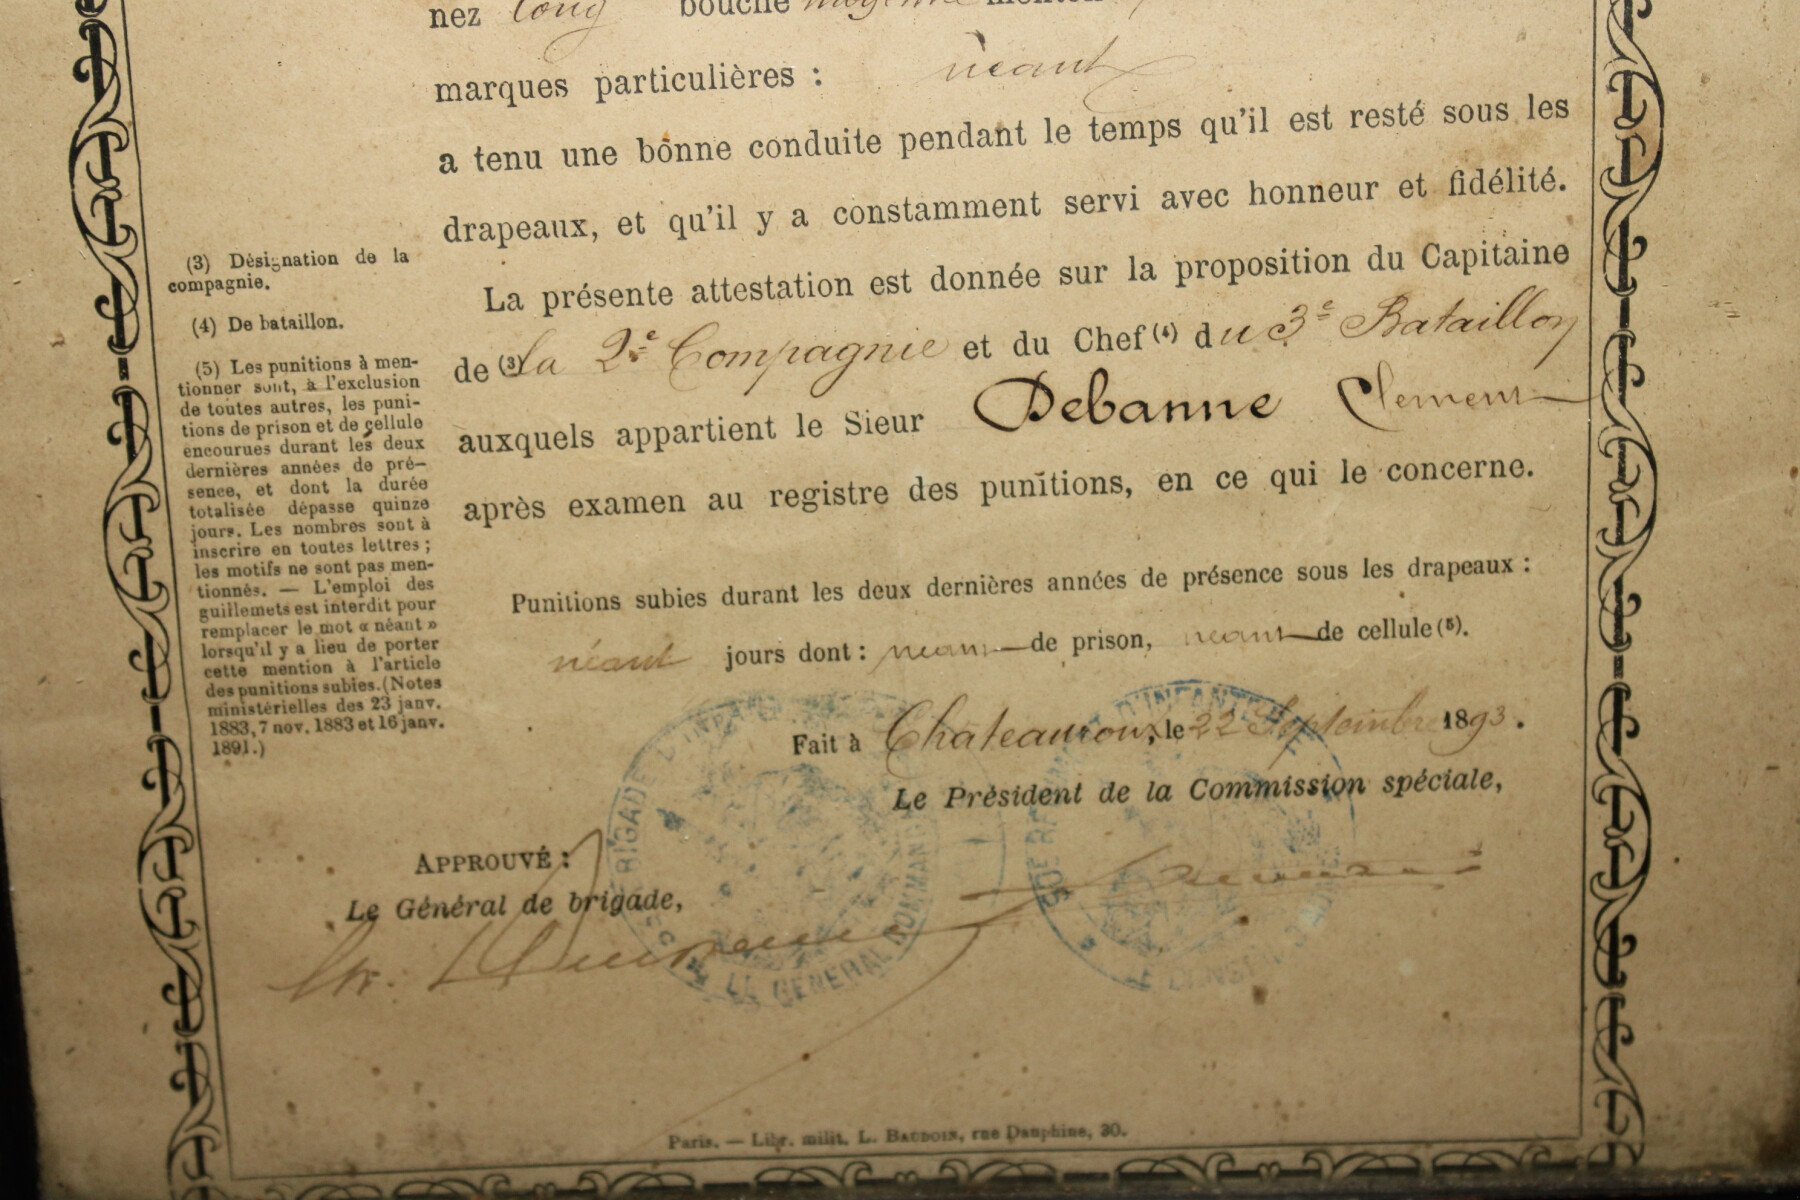 nez long bouche moyenne menton
marques particulières : néant
a tenu une bonne conduite pendant le temps qu'il est resté sous les
drapeaux, et qu'il y a constamment servi avec honneur et fidélité.
La présente attestation est donnée sur la proposition du Capitaine
de (3) la 2e Compagnie et du Chef (4) du 3e Bataillon
auxquels appartient le Sieur Debanne Clement
après examen au registre des punitions, en ce qui le concerne.
Punitions subies durant les deux dernières années de présence sous les drapeaux :
néant jours dont : néant de prison, néant de cellule (5).
Fait à Chateauroux, le 22 Septembre 1893.
Le Président de la Commission spéciale,
APPROUVÉ :
Le Général de brigade,
(3) Désignation de la
compagnie.
(4) De bataillon.
(5) Les punitions à men-
tionner sont, à l'exclusion
de toutes autres, les puni-
tions de prison et de cellule
encourues durant les deux
dernières années de pré-
sence, et dont la durée
totalisée dépasse quinze
jours. Les nombres sont à
inscrire en toutes lettres ;
les motifs ne sont pas men-
tionnés. — L'emploi des
guillemets est interdit pour
remplacer le mot « néant »
lorsqu'il y a lieu de porter
cette mention à l'article
des punitions subies. (Notes
ministérielles des 23 janv.
1883, 7 nov. 1883 et 16 janv.
1891.)
BRIGADE D'INF
LE GÉNÉRAL COMMAN
D'INFANTERIE
Paris. — Libr. milit. L. BAUDOIN, rue Dauphine, 30.